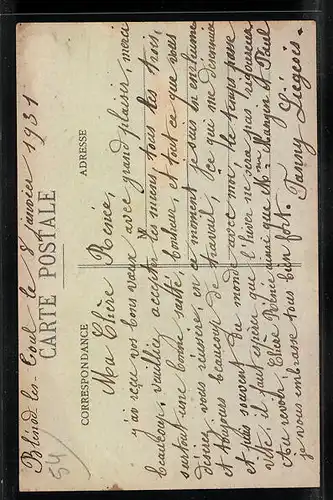 Blénod les-Toul le 8 janvier 1931
CARTE POSTALE
CORRESPONDANCE
ADRESSE
Ma Chère Renée,
j'ai reçu vos bons vœux avec grand plaisir, merci
beaucoup, veuillez accepter les miens tous les trois,
surtout une bonne santé, bonheur, et tout ce que vous
désirez vous réussire, en ce moment je suis un enrhumée
et toujours beaucoup de travail, ce qui me
et puis souvent du monde avec moi, le temps passe
vite; il faut espérer que l'hiver ne sera pas rigoureux
Au revoir, Chère Renée ainsi que Mme Mangin et Paul
je vous embrasse tous bien fort. Fanny Liégeois.
54